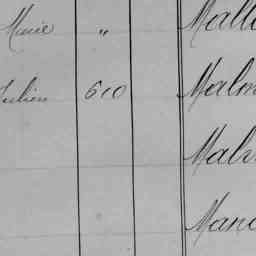 Marie " Mall
Julien 610 Malm
Malv
Mano